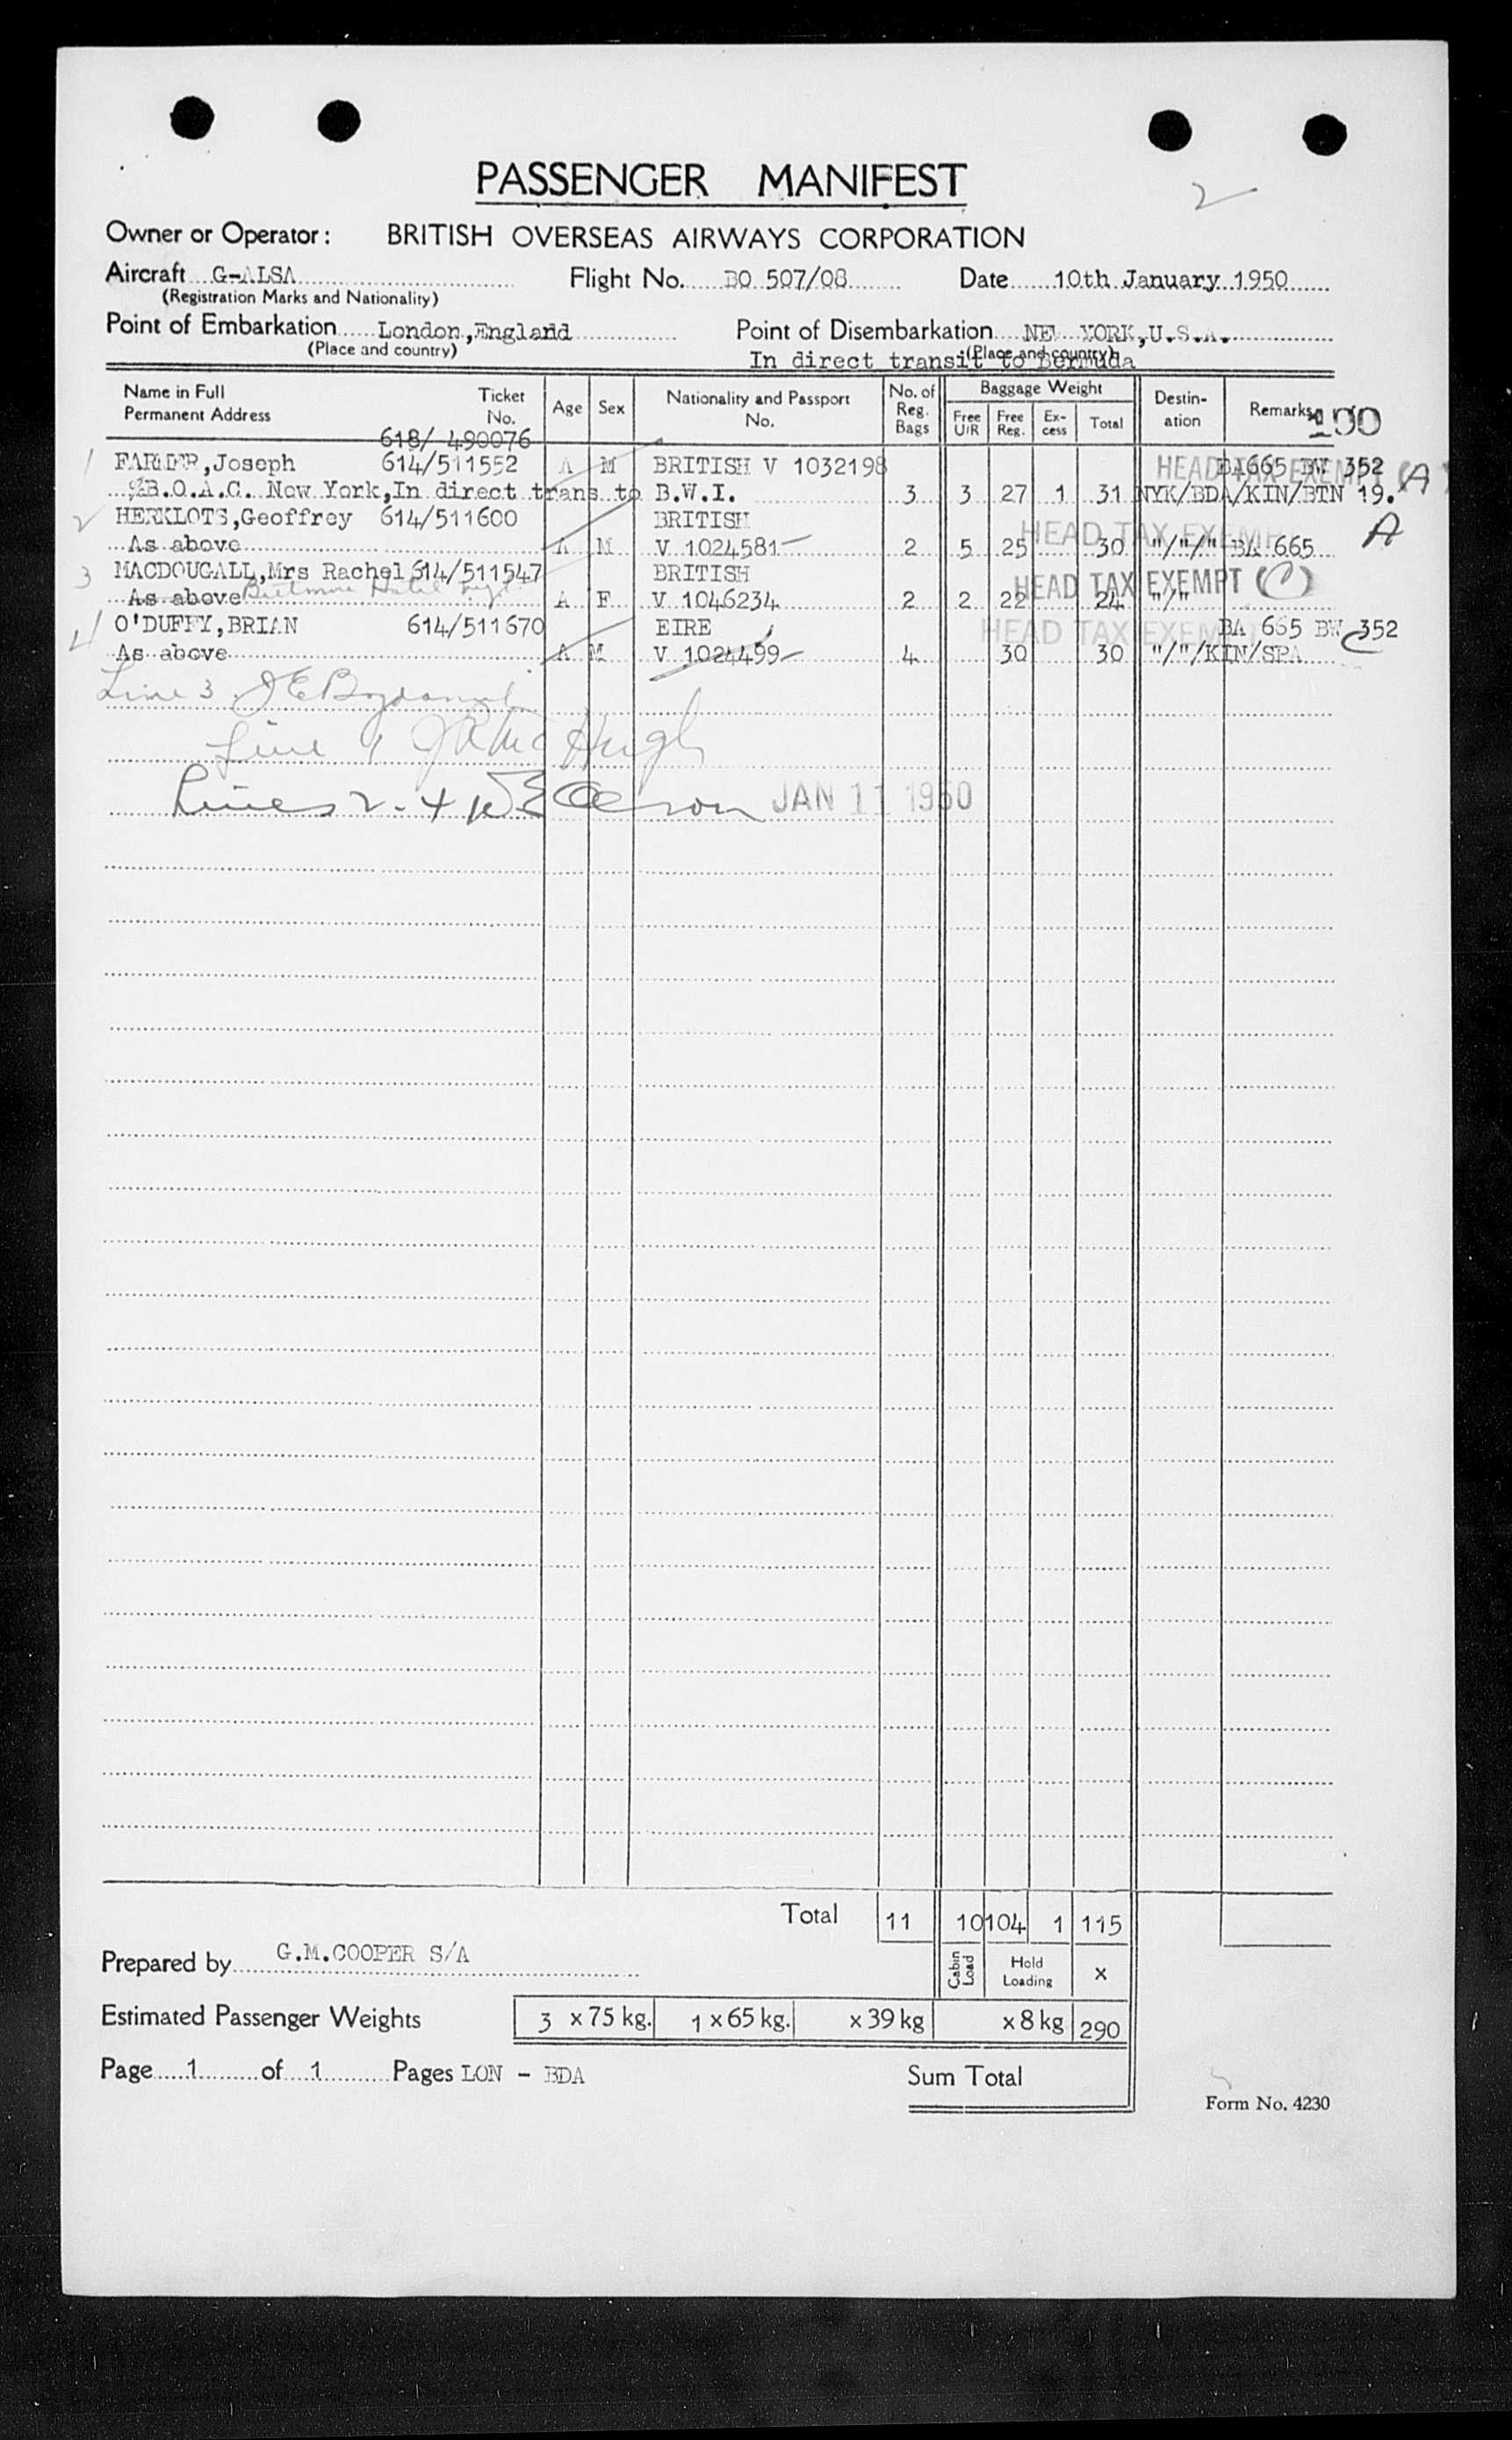 2
PASSENGER MANIFEST
Owner or Operator: BRITISH OVERSEAS AIRWAYS CORPORATION
Aircraft G-ALSA Flight No. BO 507/08 Date 10th January 1950
(Registration Marks and Nationality)
Point of Embarkation London, England Point of Disembarkation NEW YORK, U.S.A.
(Place and country) (Place and country)
In direct transit to Bermuda
Name in Full Ticket Age Sex Nationality and Passport No. of Baggage Weight Destin- Remarks
Permanent Address No. No. Reg. Bags Free U/R Free Reg. Ex- cess Total ation
618/ 490076
1 FARMER, Joseph 614/511552 A M BRITISH V 1032198 HEAD TAX EXEMPT BA665 BW 352
% B.O.A.C. New York, In direct trans to B.W.I. 3 3 27 1 31 NYK/BDA/KIN/BTN 19. (A)
2 HERKLOTS, Geoffrey 614/511600 BRITISH HEAD TAX EXEMPT
As above A M V 1024581 2 5 25 30 "/"/" BA 665 A
3 MACDOUGALL, Mrs Rachel 614/511547 BRITISH HEAD TAX EXEMPT (C)
As above Biltmore Hotel A F V 1046234 2 2 22 24 "/"
4 O'DUFFY, BRIAN 614/511670 EIRE HEAD TAX EXEMPT BA 665 BW 352
As above A M V 1024499 4 30 30 "/"/KIN/SPA
Line 3
Line 1 Hugh
Lines 2-4 JAN 11 1950
Total 11 10 104 1 115
Prepared by G.M.COOPER S/A Cabin Load Hold Loading x
Estimated Passenger Weights 3 x 75 kg. 1 x 65 kg. x 39 kg x 8 kg 290
Page 1 of 1 Pages LON - BDA Sum Total
Form No. 4230